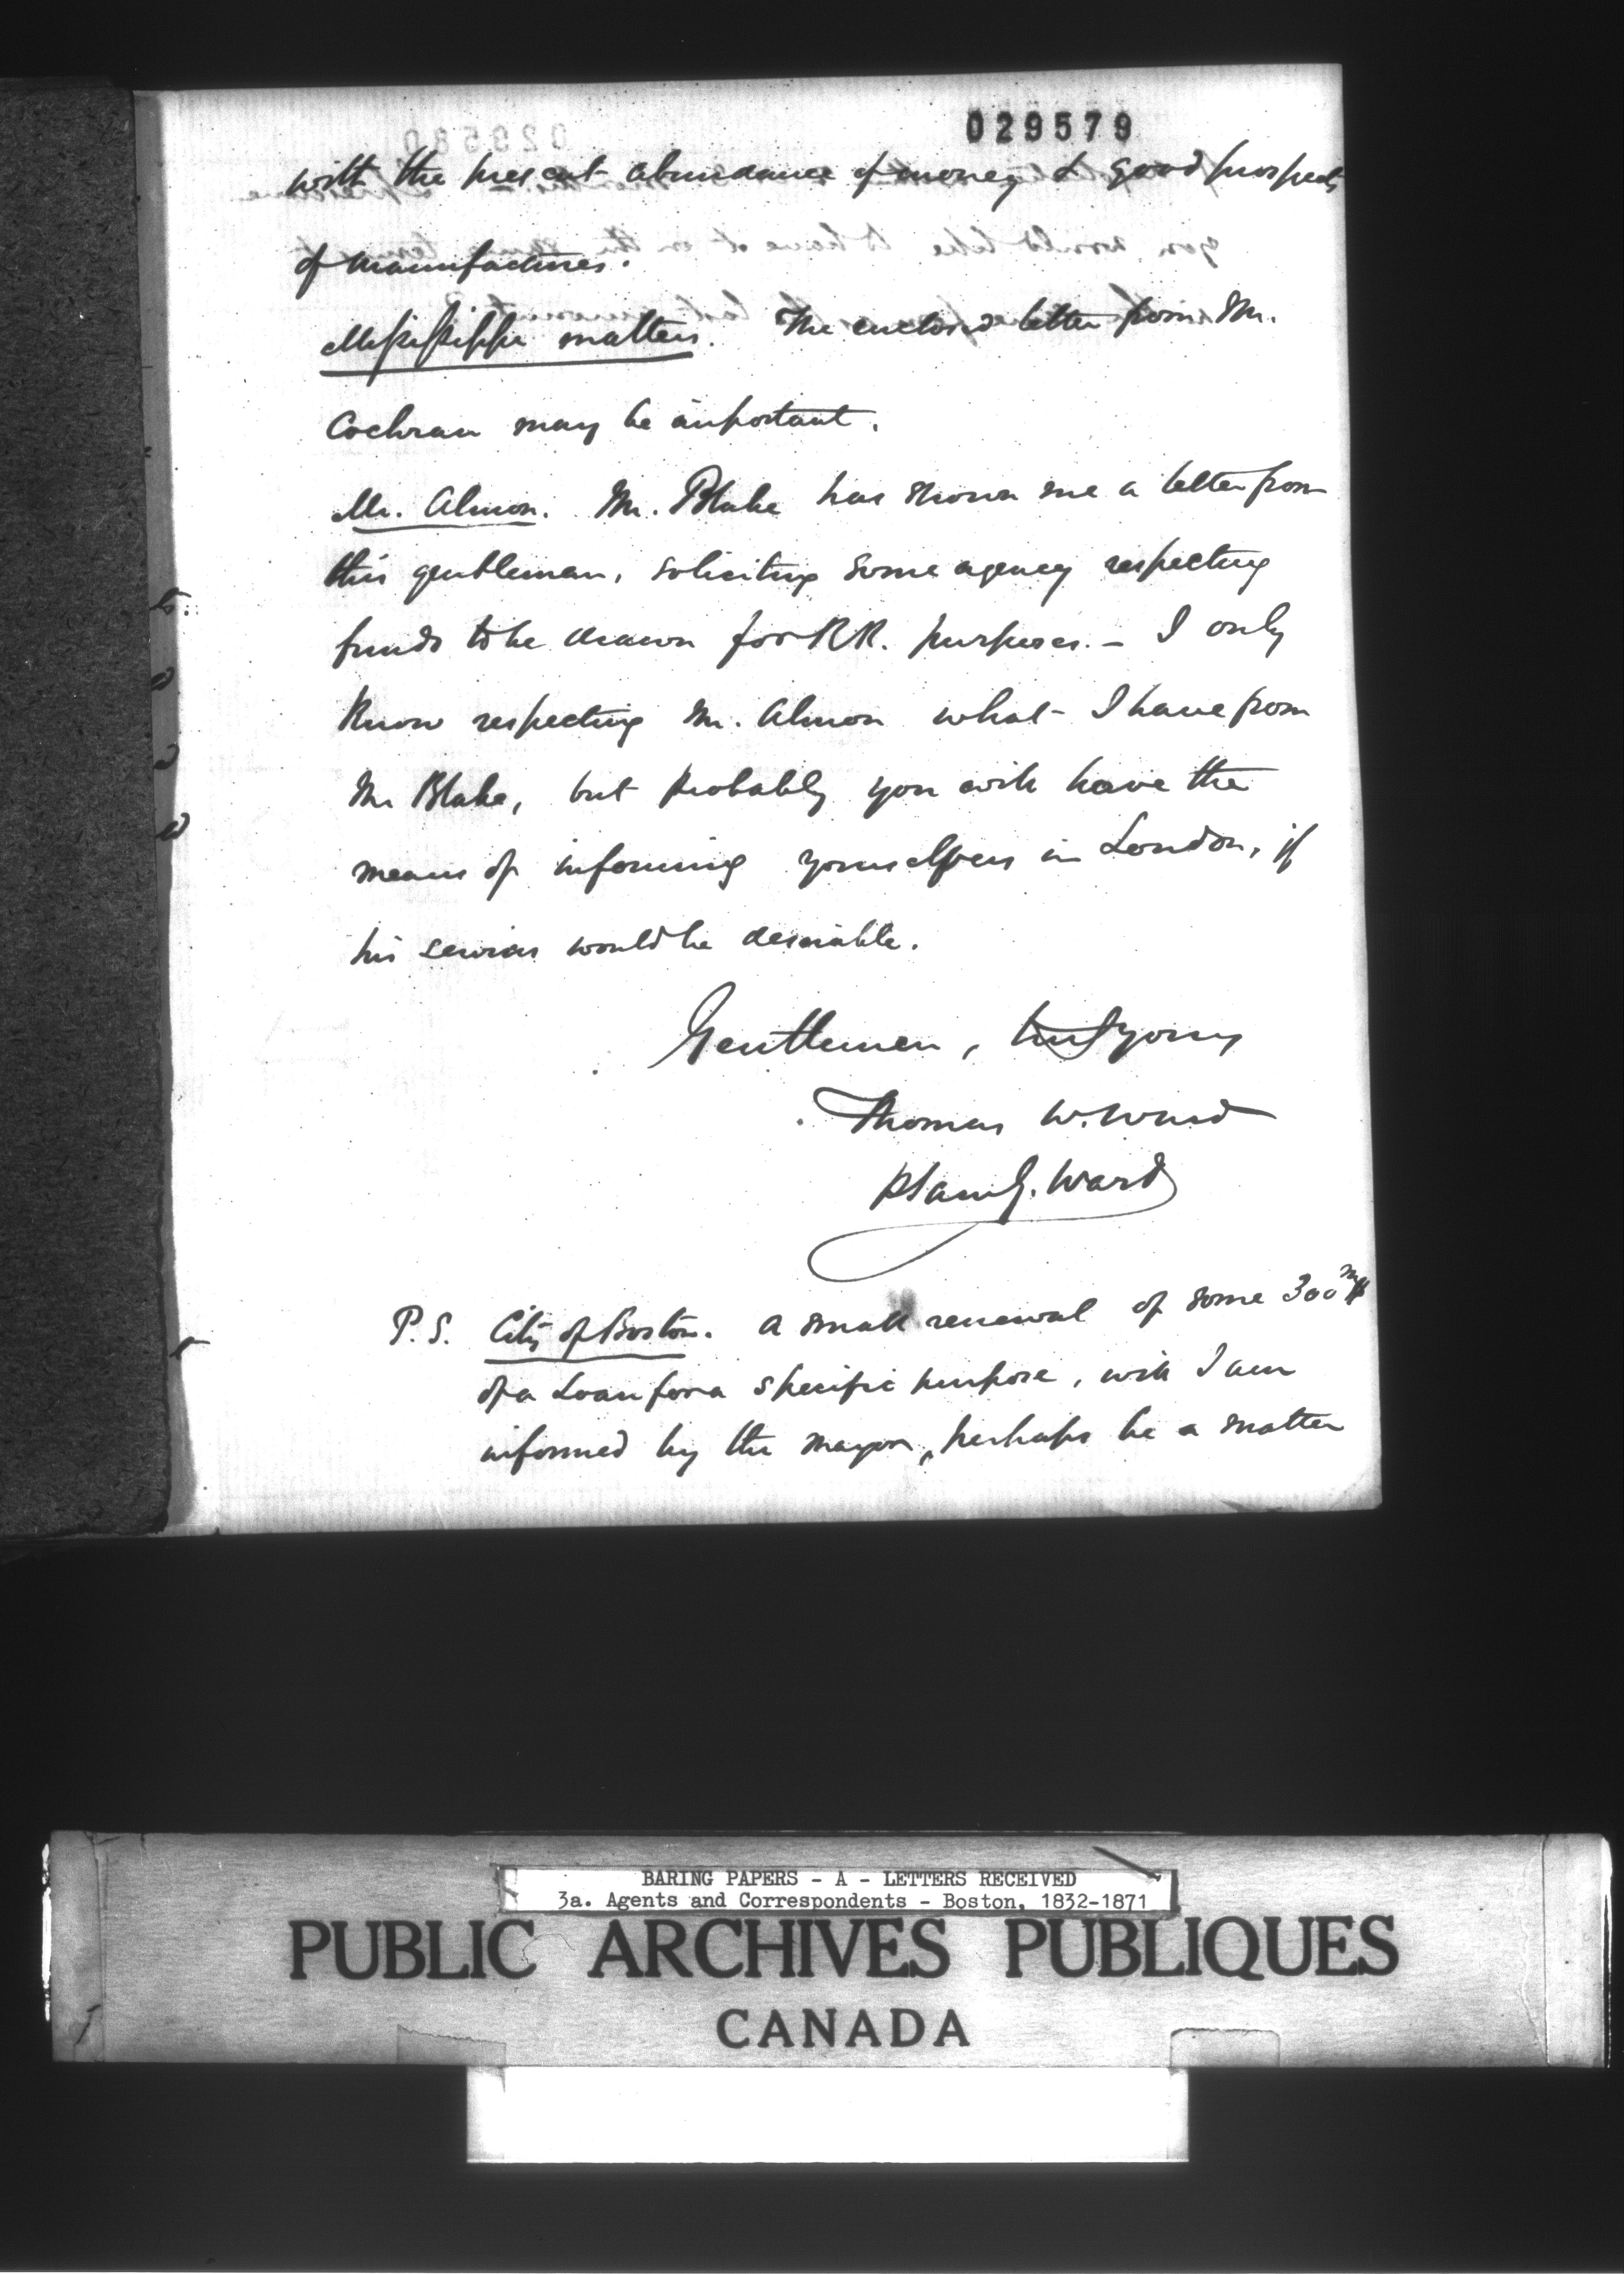 029579
with the present abundance of money & good prospects
of manufactures.
Mississippi matters. The enclosed letter from Mr.
Cochran may be important.
Mr. Almon. Mr. Blake has shown me a letter from
this gentleman, soliciting some agency respecting
funds to be drawn for RR. purposes. - I only
know respecting Mr. Almon what I have from
Mr Blake, but probably you will have the
means of informing yourselves in London, if
his services would be desirable.
Gentlemen, truly yours
Thomas W. Ward
p Saml G. Ward
P.S. City of Boston. A small renewal of some 300 m $
of a Loan for a specific purpose, will I am
informed by the Mayor, perhaps be a matter
BARING PAPERS - A - LETTERS RECEIVED
3a. Agents and Correspondents - Boston, 1832-1871
PUBLIC ARCHIVES PUBLIQUES
CANADA